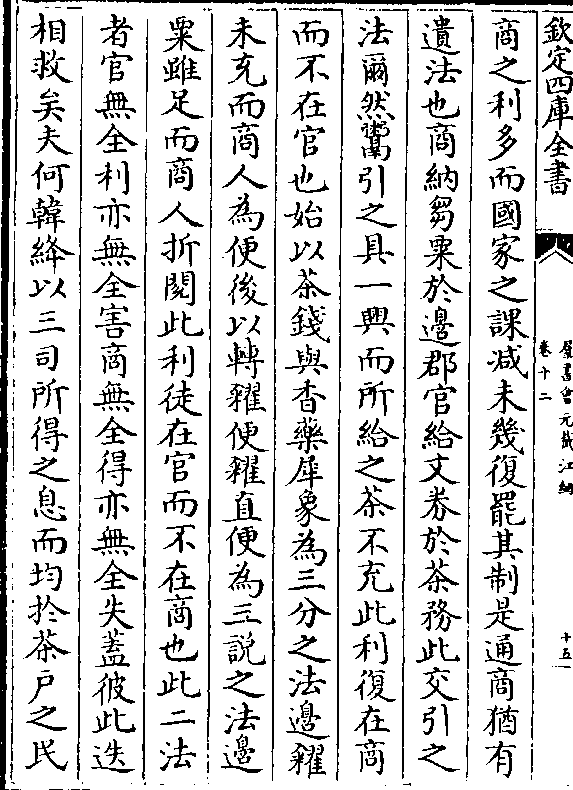 欽定四庫全書
羣書會元截江網
卷十二
十五
商之利多而國家之課減未幾復罷其制是通商猶有
遺法也商納芻粟於邊郡官給文券於茶務此交引之
法爾然鬻引之具一興而所給之茶不充此利復在商
而不在官也始以茶錢與香藥犀象為三分之法邊糴
未充而商人為便後以轉糴便糴直便為三說之法邊
粟雖足而商人折閱此利徒在官而不在商也此二法
者官無全利亦無全害商無全得亦無全失蓋彼此迭
相救矣夫何韓絳以三司所得之息而均於茶戶之民